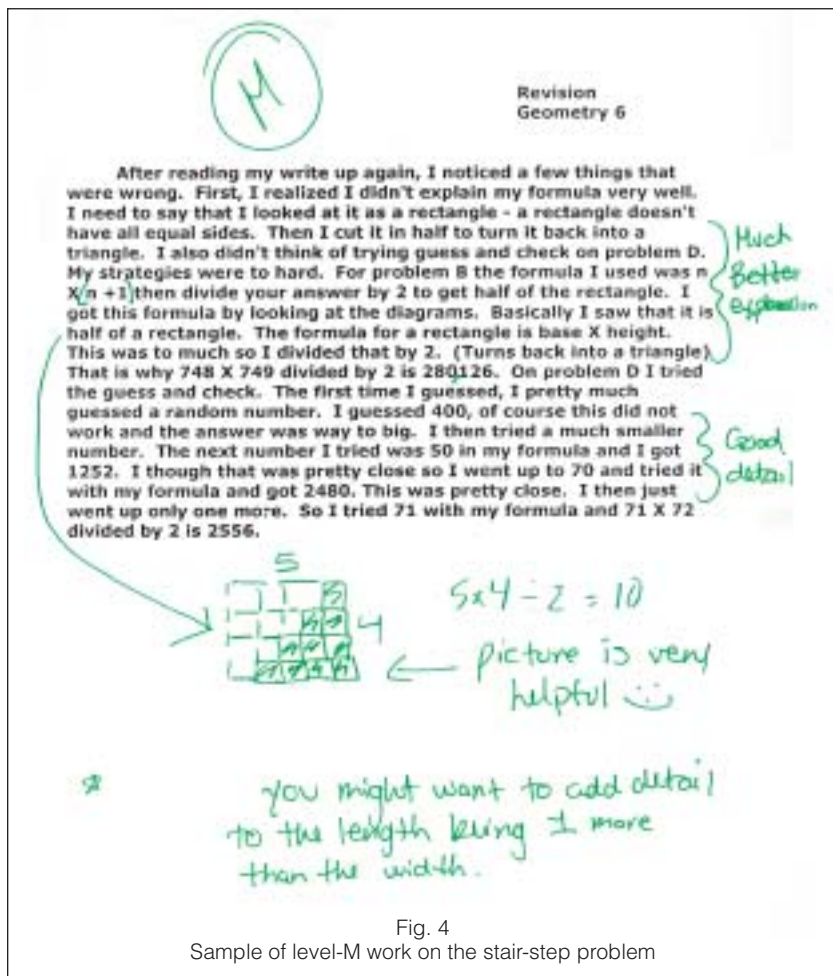 M
Revision
Geometry 6
After reading my write up again, I noticed a few things that
were wrong. First, I realized I didn't explain my formula very well.
I need to say that I looked at it as a rectangle - a rectangle doesn't
have all equal sides. Then I cut it in half to turn it back into a
triangle. I also didn't think of trying guess and check on problem D.
My strategies were to hard. For problem B the formula I used was n
X (n +1) then divide your answer by 2 to get half of the rectangle. I
got this formula by looking at the diagrams. Basically I saw that it is
half of a rectangle. The formula for a rectangle is base X height.
This was to much so I divided that by 2. (Turns back into a triangle)
That is why 748 X 749 divided by 2 is 280126. On problem D I tried
the guess and check. The first time I guessed, I pretty much
guessed a random number. I guessed 400, of course this did not
work and the answer was way to big. I then tried a much smaller
number. The next number I tried was 50 in my formula and I got
1252. I though that was pretty close so I went up to 70 and tried it
with my formula and got 2480. This was pretty close. I then just
went up only one more. So I tried 71 with my formula and 71 X 72
divided by 2 is 2556.
Much
Better
explanation
Good
detail
5
4
5x4 ÷ 2 = 10
picture is very
helpful
you might want to add detail
to the length being 1 more
than the width.
Fig. 4
Sample of level-M work on the stair-step problem